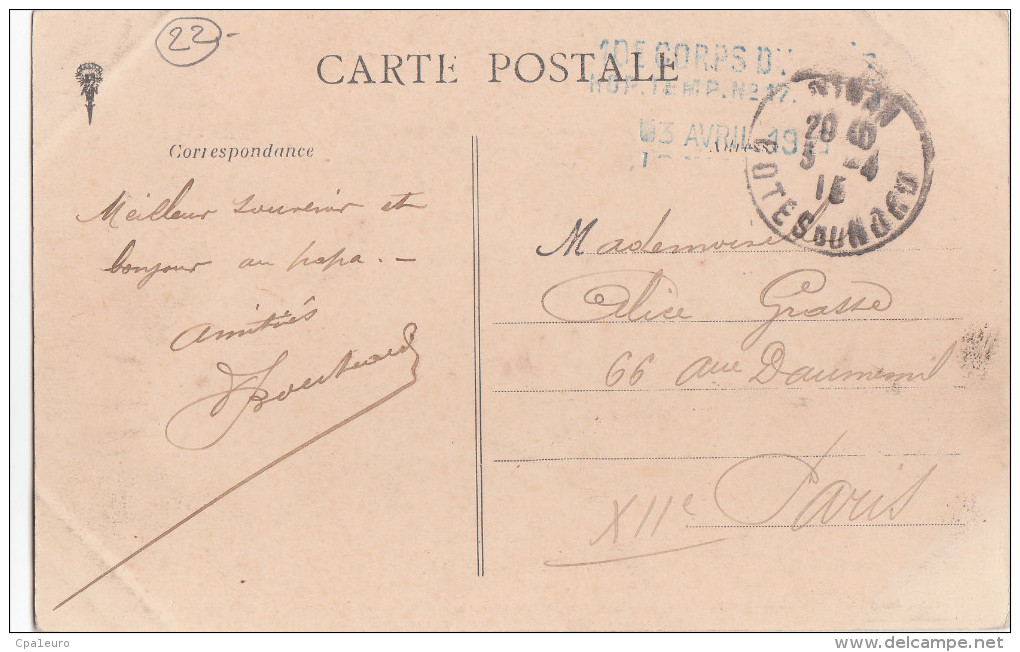 22
CARTE POSTALE
10E CORPS
HOP. TEMP. No
3 AVRIL 19
DINAN
20
5 -4
15
COTES DU NORD
Correspondance
Meilleur souvenir et
bonjour au papa. —
Amitiés
Mademoiselle
Alice Grasse
66 ave Daumesnil
Paris
XIIe
Cpaleuro
www.delcampe.net